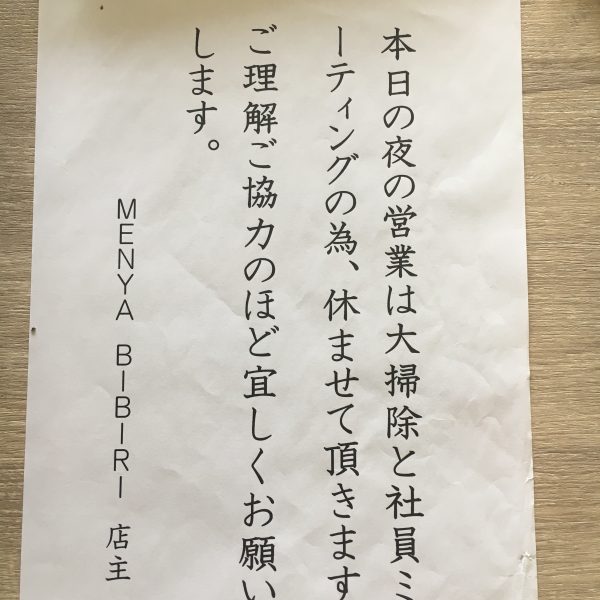 本日の夜の営業は大掃除と社員ミ
ーティングの為、休ませて頂きます
ご理解ご協力のほど宜しくお願い
します。
MENYA BIBIRI 店主